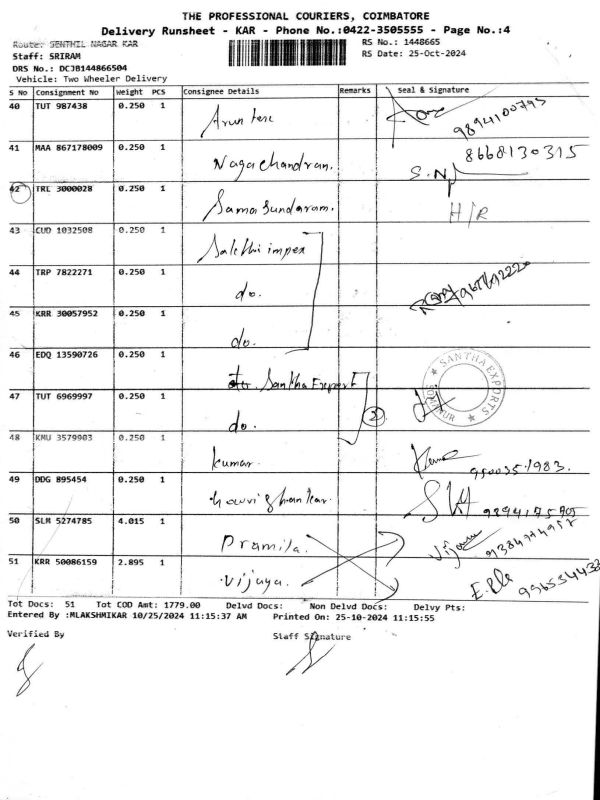 THE PROFESSIONAL COURIERS, COIMBATORE
Delivery Runsheet - KAR - Phone No.:0422-3505555 - Page No.:4
Route: SENTHIL NAGAR KAR
RS No.: 1448665
Staff: SRIRAM
RS Date: 25-Oct-2024
DRS No.: DCJB144866504
Vehicle: Two Wheeler Delivery
S No Consignment No Weight PCS Consignee Details Remarks Seal & Signature
40 TUT 987438 0.250 1 9894100795
41 MAA 867178009 0.250 1 Nagachandran. S.N 8668130315
42 TRL 3000028 0.250 1 Sama Sundaram. H/R
43 CUD 1032508 0.250 1 Sakthi impex
44 TRP 7822271 0.250 1 do.
45 KRR 30057952 0.250 1 do.
46 EDQ 13590726 0.250 1 Santha Export SANTHA EXPORTS
47 TUT 6969997 0.250 1 do. 2
48 KMU 3579903 0.250 1 kumar.
49 DDG 895454 0.250 1 Gowri Shankar.
50 SLM 5274785 4.015 1 Pramila.
51 KRR 50086159 2.895 1 Vijaya.
Tot Docs: 51 Tot COD Amt: 1779.00 Delvd Docs: Non Delvd Docs: Delvy Pts:
Entered By :MLAKSHMIKAR 10/25/2024 11:15:37 AM Printed On: 25-10-2024 11:15:55
Verified By Staff Signature